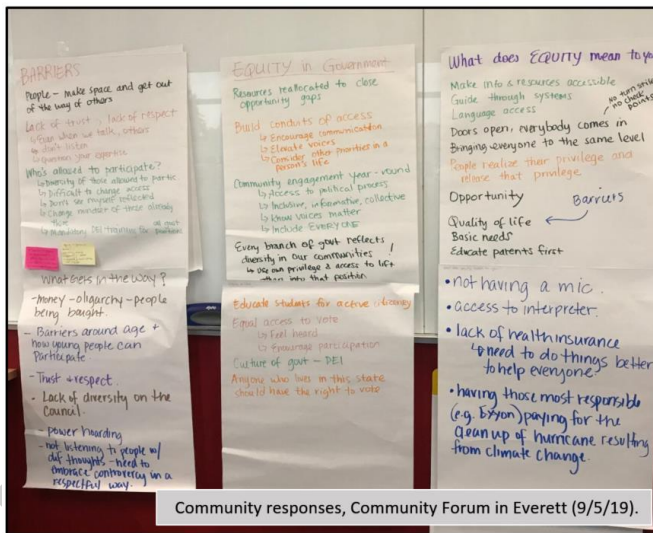 BARRIERS
People - make space and get out
of the way of others
Lack of trust, lack of respect
↳ Even when we talk, others
don't listen
↳ question your expertise
Who's allowed to participate?
↳ Diversity of those allowed to partic
↳ Difficult to change access
↳ Don't see myself reflected
↳ Change mindset of those already
there
↳ Mandatory DEI training for positions
What gets in the way?
-money - oligarchy - people
being bought.
- Barriers around age +
how young people can
Participate.
- Trust + respect.
- Lack of diversity on the
Council.
- power hoarding
- not listening to people w/
dif thoughts - need to
embrace controversy in a
respectful way.
EQUITY in Government
Resources reallocated to close
opportunity gaps
Build conduits of access
↳ Encourage communication
↳ Elevate voices
↳ Consider other priorities in a
person's life
Community engagement year-round
↳ Access to political process
↳ Inclusive, informative, collective
↳ Know voices matter
↳ Include EVERYONE
Every branch of govt reflects
diversity in our communities
↳ Use own privilege & access to lift
into that position
Educate students for active
Equal access to vote
↳ Feel heard
↳ Encourage participation
Culture of govt - DEI
Anyone who lives in this state
should have the right to vote
What does EQUITY mean to you
Make info & resources accessible
Guide through systems
Language access
No turn stile
no check
points
Doors open, everybody comes in
Bringing everyone to the same level
People realize their privilege and
release that privilege
Opportunity
Barriers
Quality of life
Basic needs
Educate parents first
• not having a mic.
• access to interpreter.
• lack of health insurance
↳ need to do things better
to help everyone.
• having those most responsible
(e.g. Exxon) paying for the
clean up of hurricane resulting
from climate change.
Community responses, Community Forum in Everett (9/5/19).